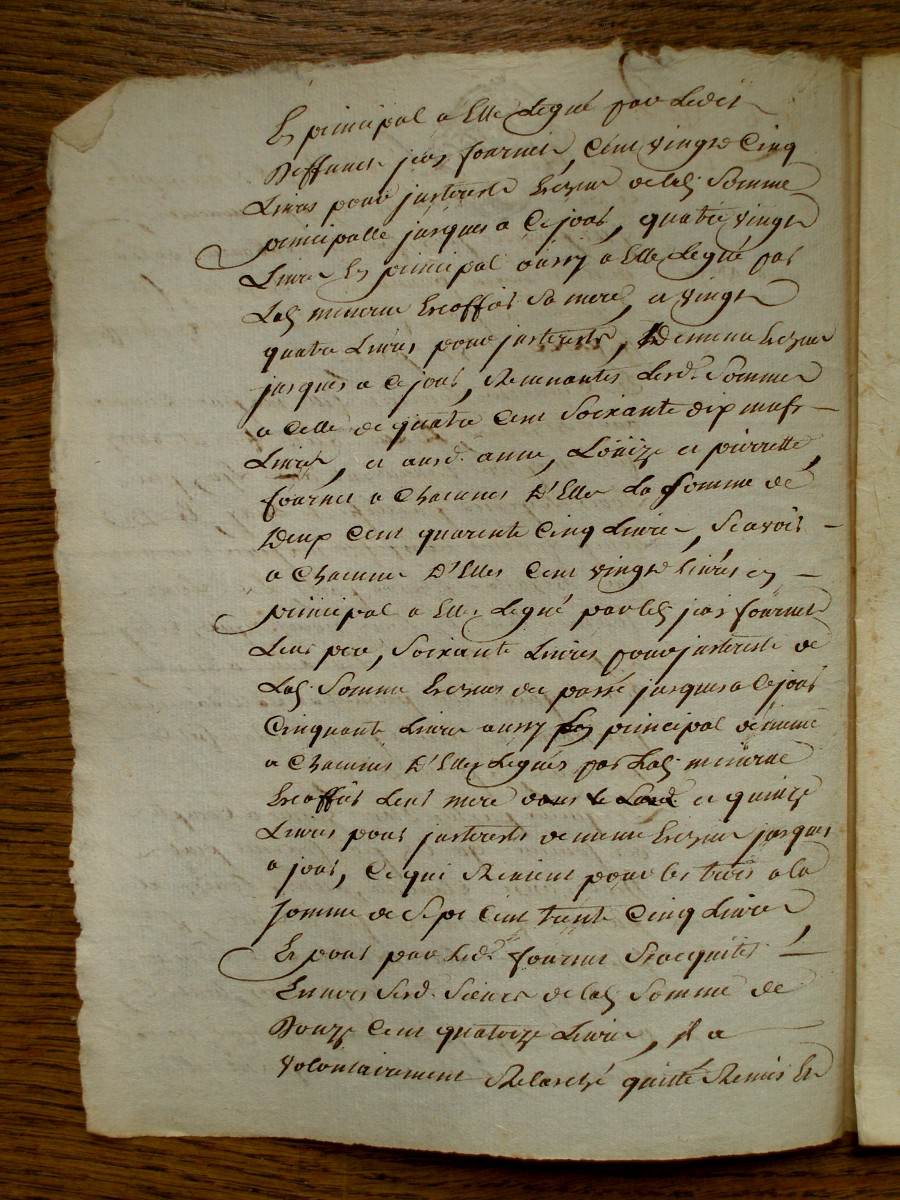 En principal a Elle Legué par Ledit
Deffunct jean fournier, Cent vingt Cinq
Livres pour jnterests Echeus de lad. Somme
principalle jusques a Ce jour, quatre vingt
Livres En principal aussy a Elle Legué par
Lad. minerue Escoffier Sa mere, et vingt
quatre Livres pour jnterests, De meme Echeus
jusques a Ce jour, Revenantes Lesd. Sommes
a Celle de quatre Cent Soixante dix neuf
Livres, et ausd. anne, Loüize et pierrette
fournier a Chacunes D'Elles La Somme de
Deux Cent quarente Cinq Livres, Scavoir
a Chacune D'Elles Cent vingt Livres en
principal a Elles Legué par led. jean fournier
Leur pere, Soixante Livres pour jnterests de
Lad. Somme Echeus du passé jusques a Ce jour
Cinquante Livres aussy principal de meme
a Chacunes D'Elles Legués par Lad. minerue
Escoffier Leur mere et quinze
Livres pour jnterests de meme Echeus jusques
a jour, Ce qui Revient pour les trois a la
Somme de Sept Cent trente Cinq Livres,
Et pour par Led. fournier S'acquiter
Envers Sesd. Sœurs de lad. Somme de
Douze Cent quatorze Livres, jl a
volontairement Relasché quitté Remis Et